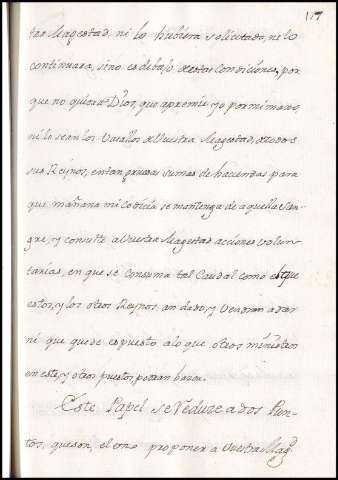 117
tra Magestad, ni lo hubiera solicitado, ne lo
continuara, sino es debajo destas Condiciones, por
que no quiera Dios, que apremie yo por mi mano,
ni lo sean los Vasallos de Vuestra Magestad, de todos
sus Reynos, en tan gruesas sumas de haciendas para
que mañana mi codicia se mantenga de aquella San-
gre, y consulte a Vuestra Magestad acciones volun-
tarias, en que se consuma tal Caudal como el que
estos, y los otros Reynos, an dado, y Vendran a dar
ni que quede expuesto a lo que otros ministros
en este, y otros puestos podran hacer.
Este Papel se Reduze a dos Pun-
tos, que son, el uno proponer a Vuestra Magd